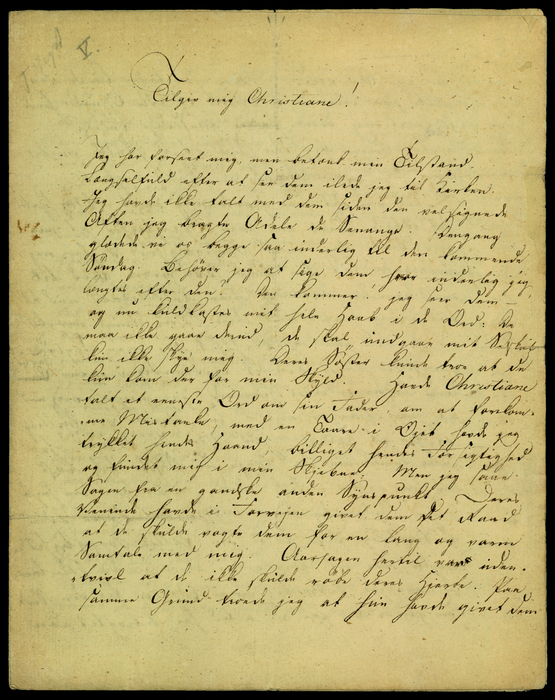 V.
Tilgiv mig Christiane!
Jeg har forseet mig, men betænk min Tilstand.
Længselfuld efter at see dem ilede jeg til Kirken.
Jeg havde ikke talt med dem siden den velsignede
Aften jeg bragte Adele de Senange. Dengang
glædede vi os begge saa inderlig til den kommende
Søndag. Behøver jeg at sige dem, hvor inderlig jeg
længtes efter den? Den kommer. jeg seer dem —
og nu kuldkastes mit hele Haab i de Ord: De
maa ikke gaae derind, de skal undgaae mit Selskab
kun ikke skye mig. Deres Søster kunde troe at de
kun kom der for min Skyld. Havde Christiane
talt et eeneste Ord om sin Fader om at forekom-
me Mistanke, med en Taare i Øjet havde jeg
trykket hendes Haand, billiget hendes Forsigtighed
og fundet mig i min Skjebne. Men jeg saae
Sagen fra en gandske anden Synspunkt. Deres
Veninde havde i Forvejen givet dem det Raad
at de skulde vogte dem for en lang og varm
Samtale med mig. Aarsagen hertil var uden
tvivl at de ikke skulde røbe deres Hjerte. Paa
samme Grund troede jeg at hun havde givet dem